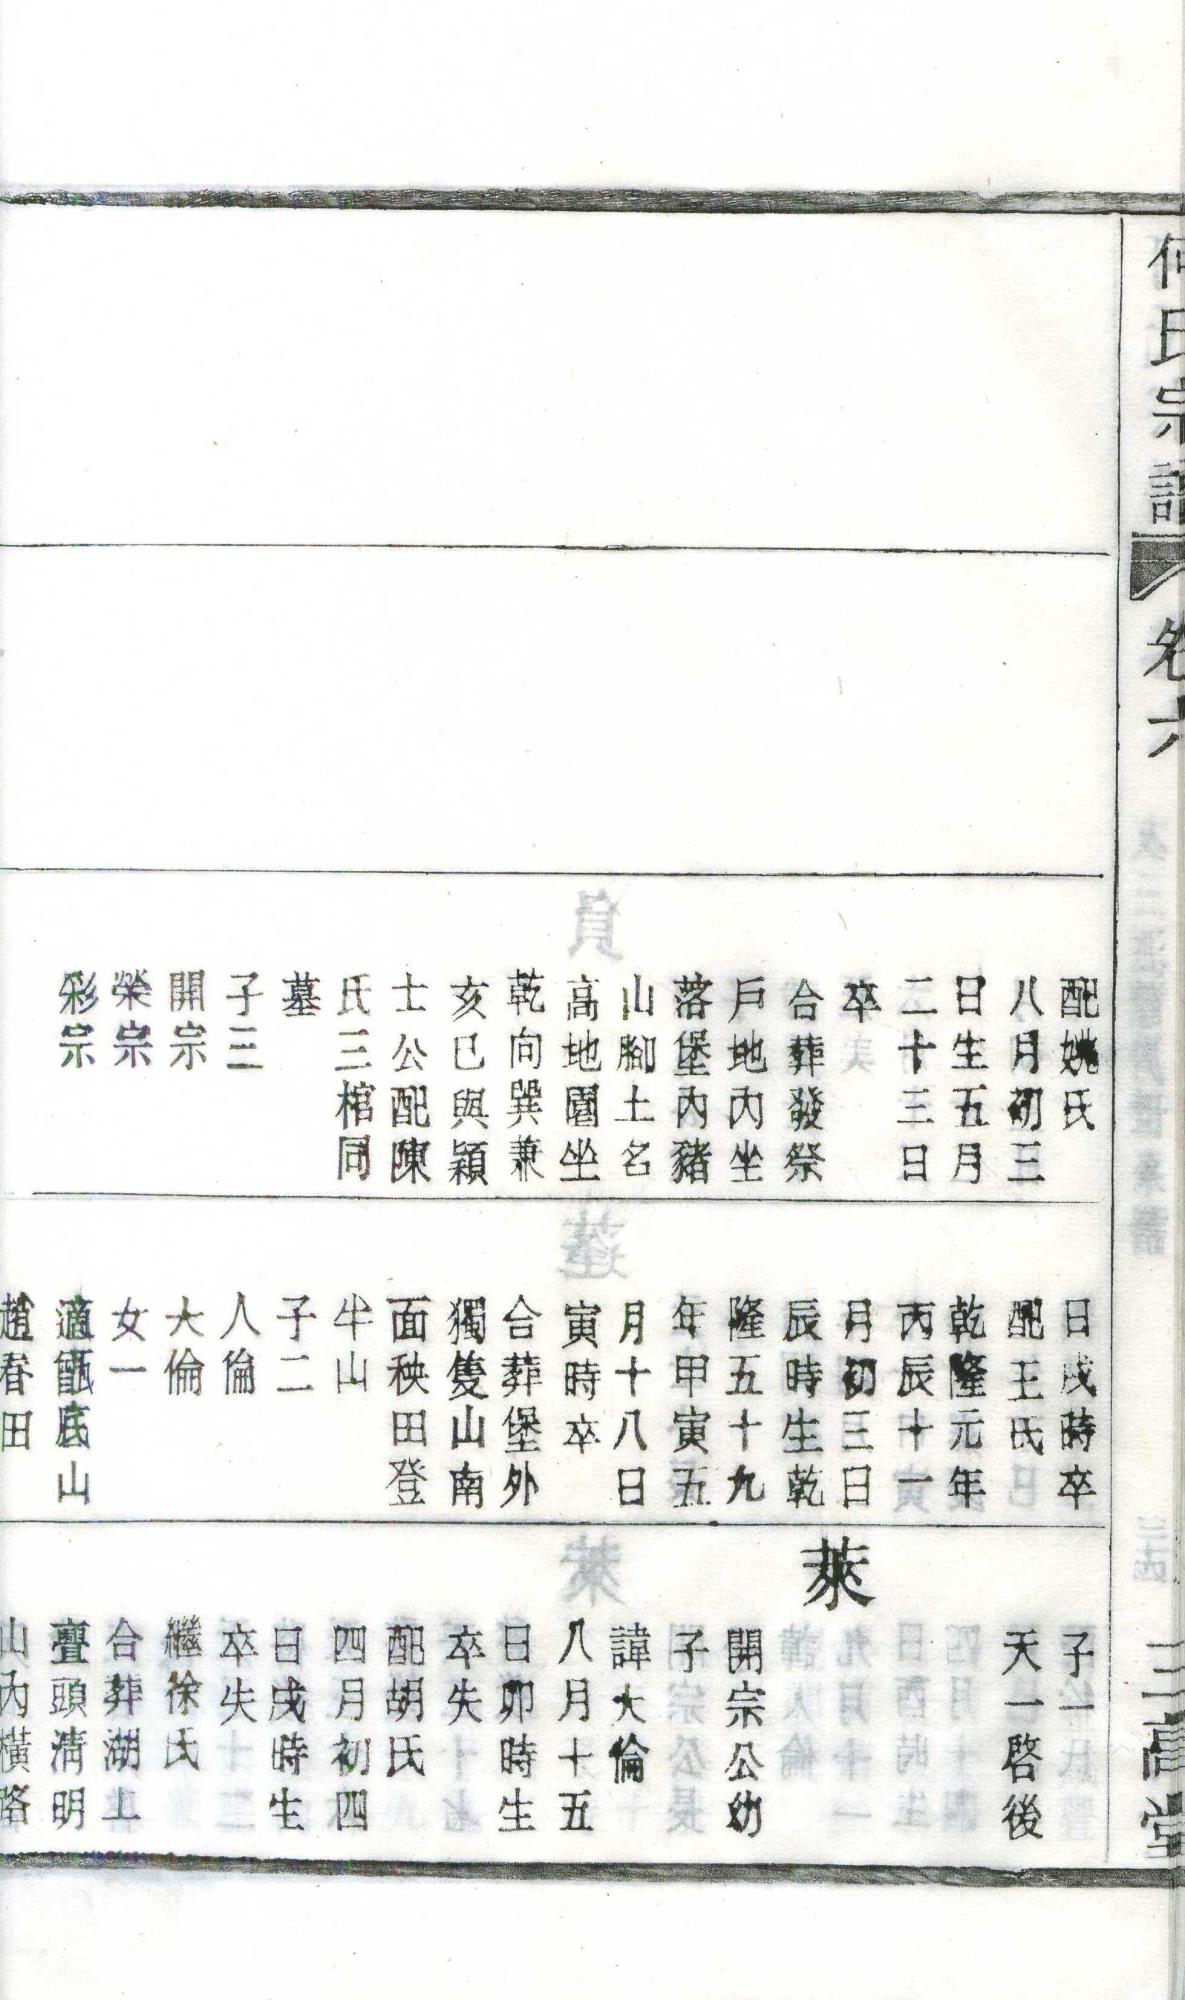 何氏宗譜
卷六
三高堂
配姚氏
八月初三
日生五月
二十三日
卒
合葬發祭
戶地內坐
落堡內豬
山腳土名
高地園坐
乾向巽兼
亥巳與穎
士公配陳
氏三棺同
墓
子三
開宗
榮宗
彩宗
日戌時卒
配王氏
乾隆元年
丙辰十一
月初三日
辰時生乾
隆五十九
年甲寅五
月十八日
寅時卒
合葬堡外
獨隻山南
面秧田登
牛山
子二
人倫
大倫
女一
適甑底山
趙春田
子一
天一啓後
萊
開宗公幼
子
諱大倫
八月十五
日卯時生
卒失
配胡氏
四月初四
日戌時生
卒失
繼徐氏
合葬湖上
疊頭清明
山內橫路